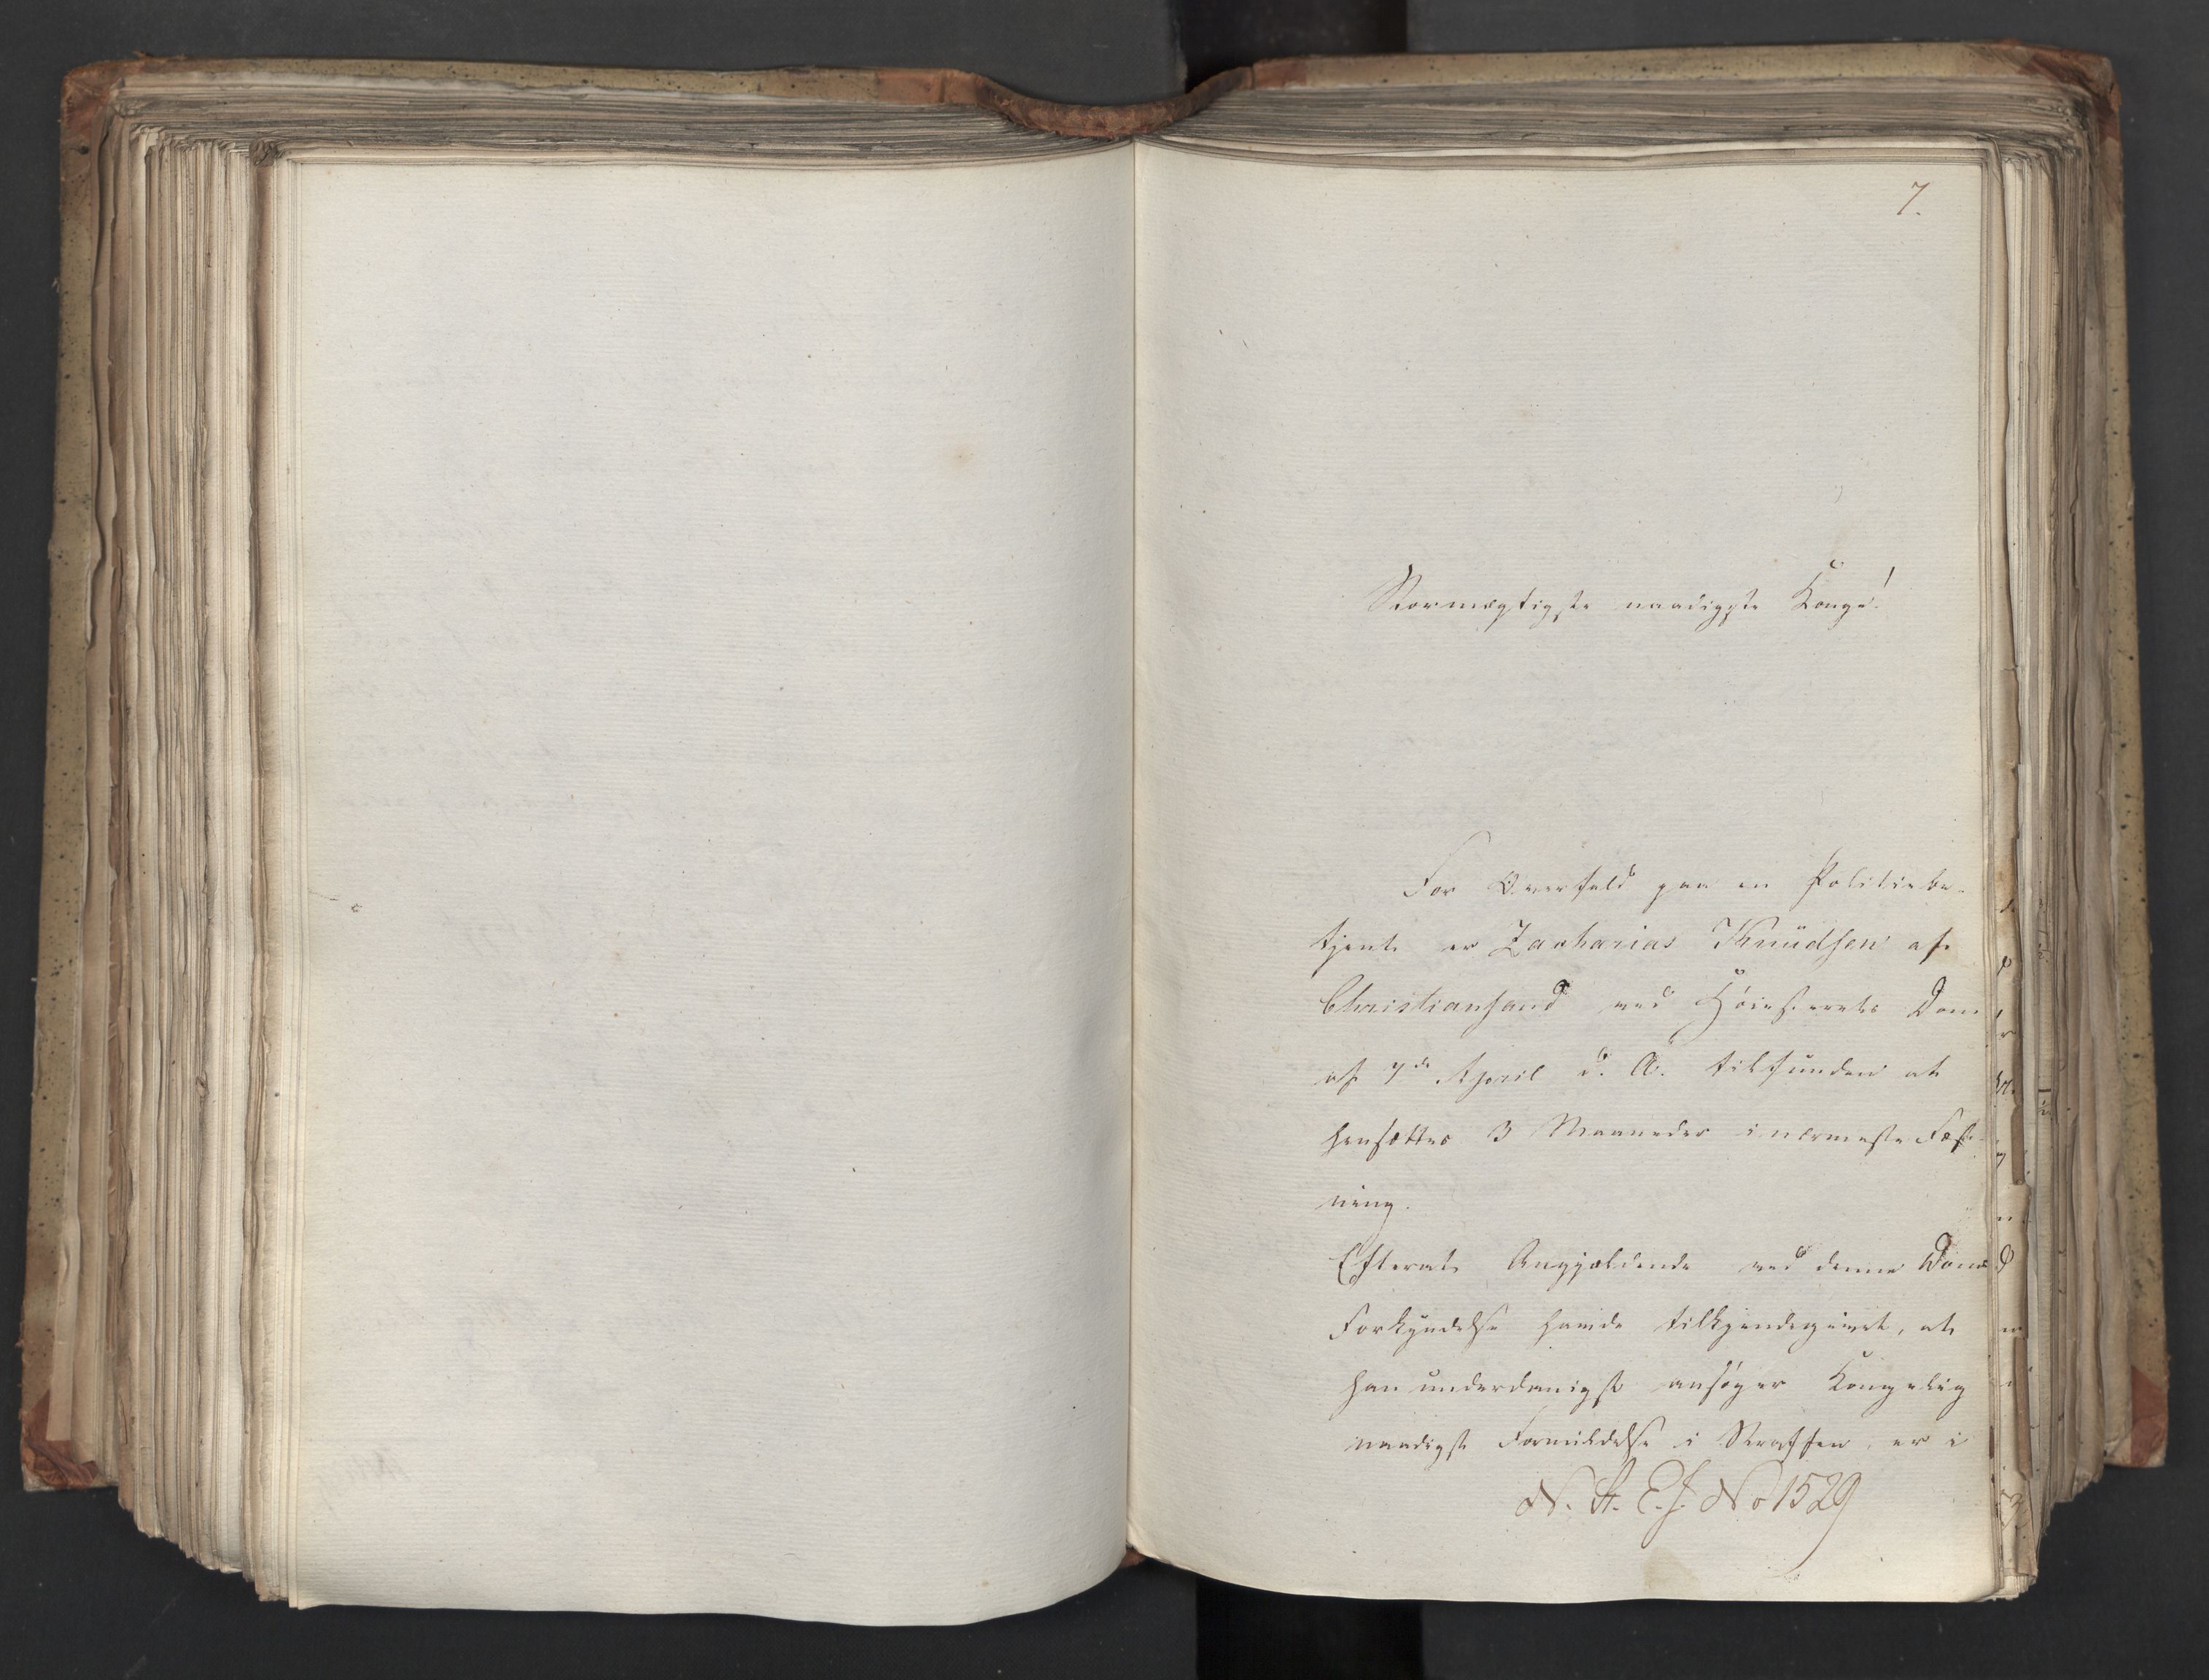 7.
Stormægtigste naadigste Konge!
For Overfald paa en Politiebe-
tjent er Zacharias Knudsen af
Christiansand ved Höiesterets Dom
af 7de April d. A. tilfunden at
hensættes 3 Maaneder i nærmeste Fæst-
ning.
Efterat Angjældende ved denne Doms
Forkyndelse havde tilkjendegivet, at
han underdanigst ansøger Kongelig
naadigst Formildelse i Straffen, er i
N. St. E. J. No 1529